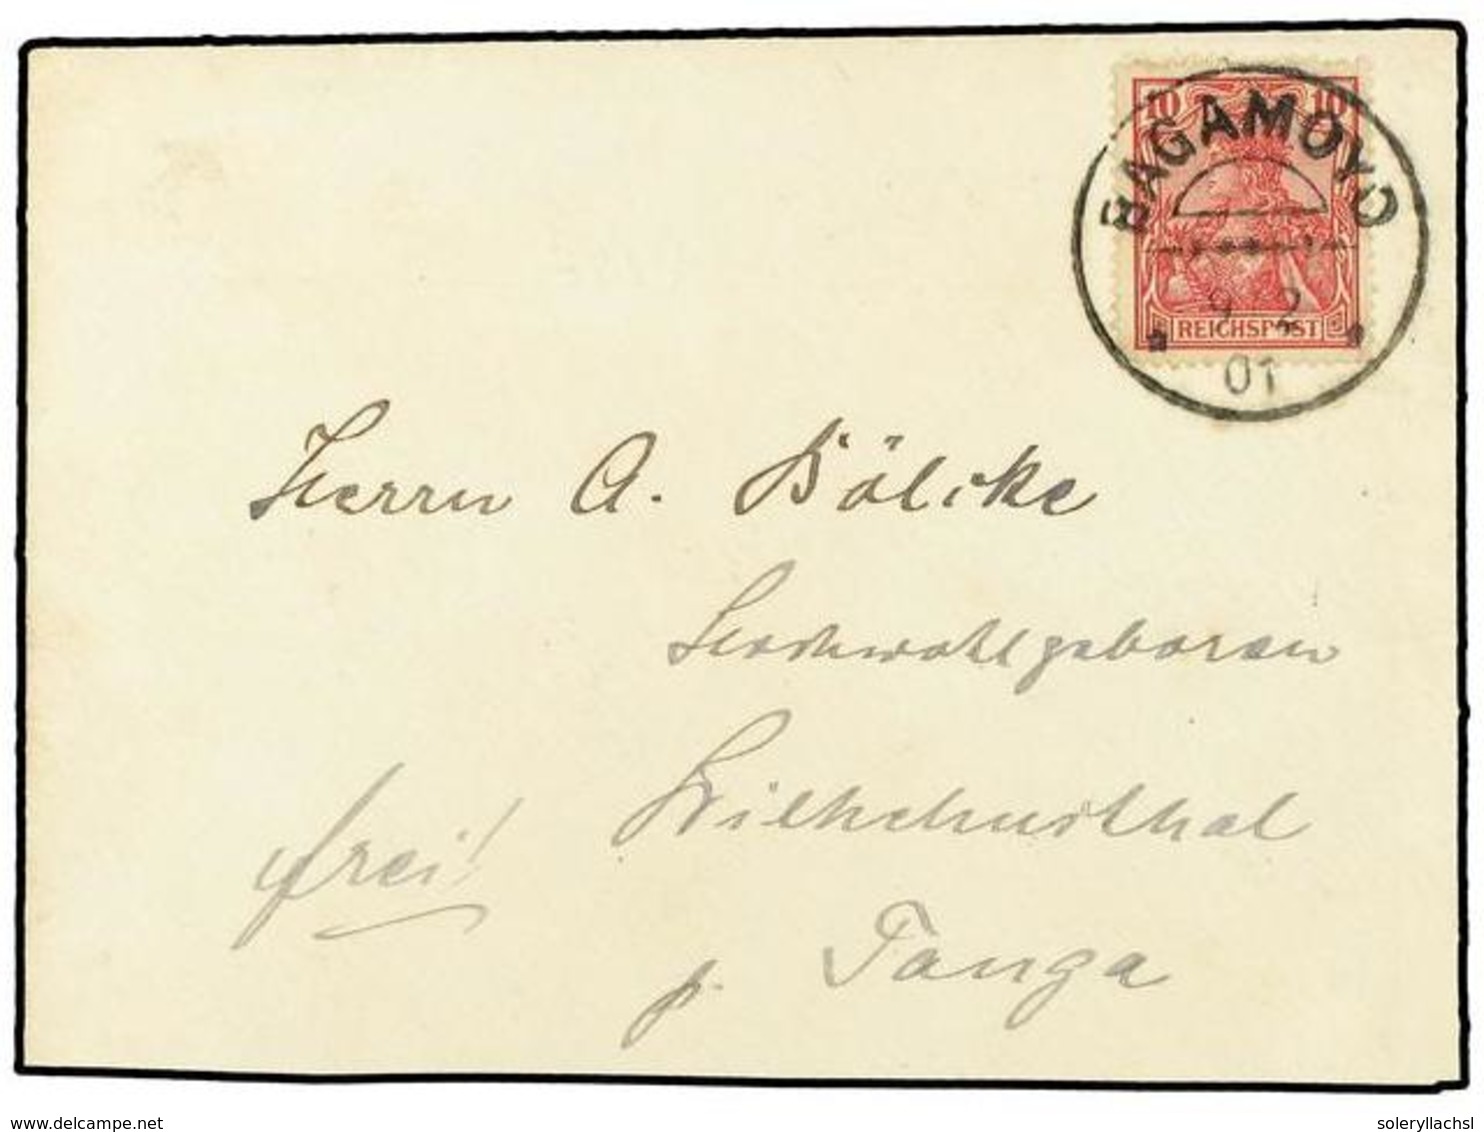 10 10
BAGAMOYO
9 2
01
REICHSPOST
Herrn A. Bölcke
Hochwohlgeboren
Wilhelmsthal
frei!
p. Tanga
delcampe.net
soleryllachsl